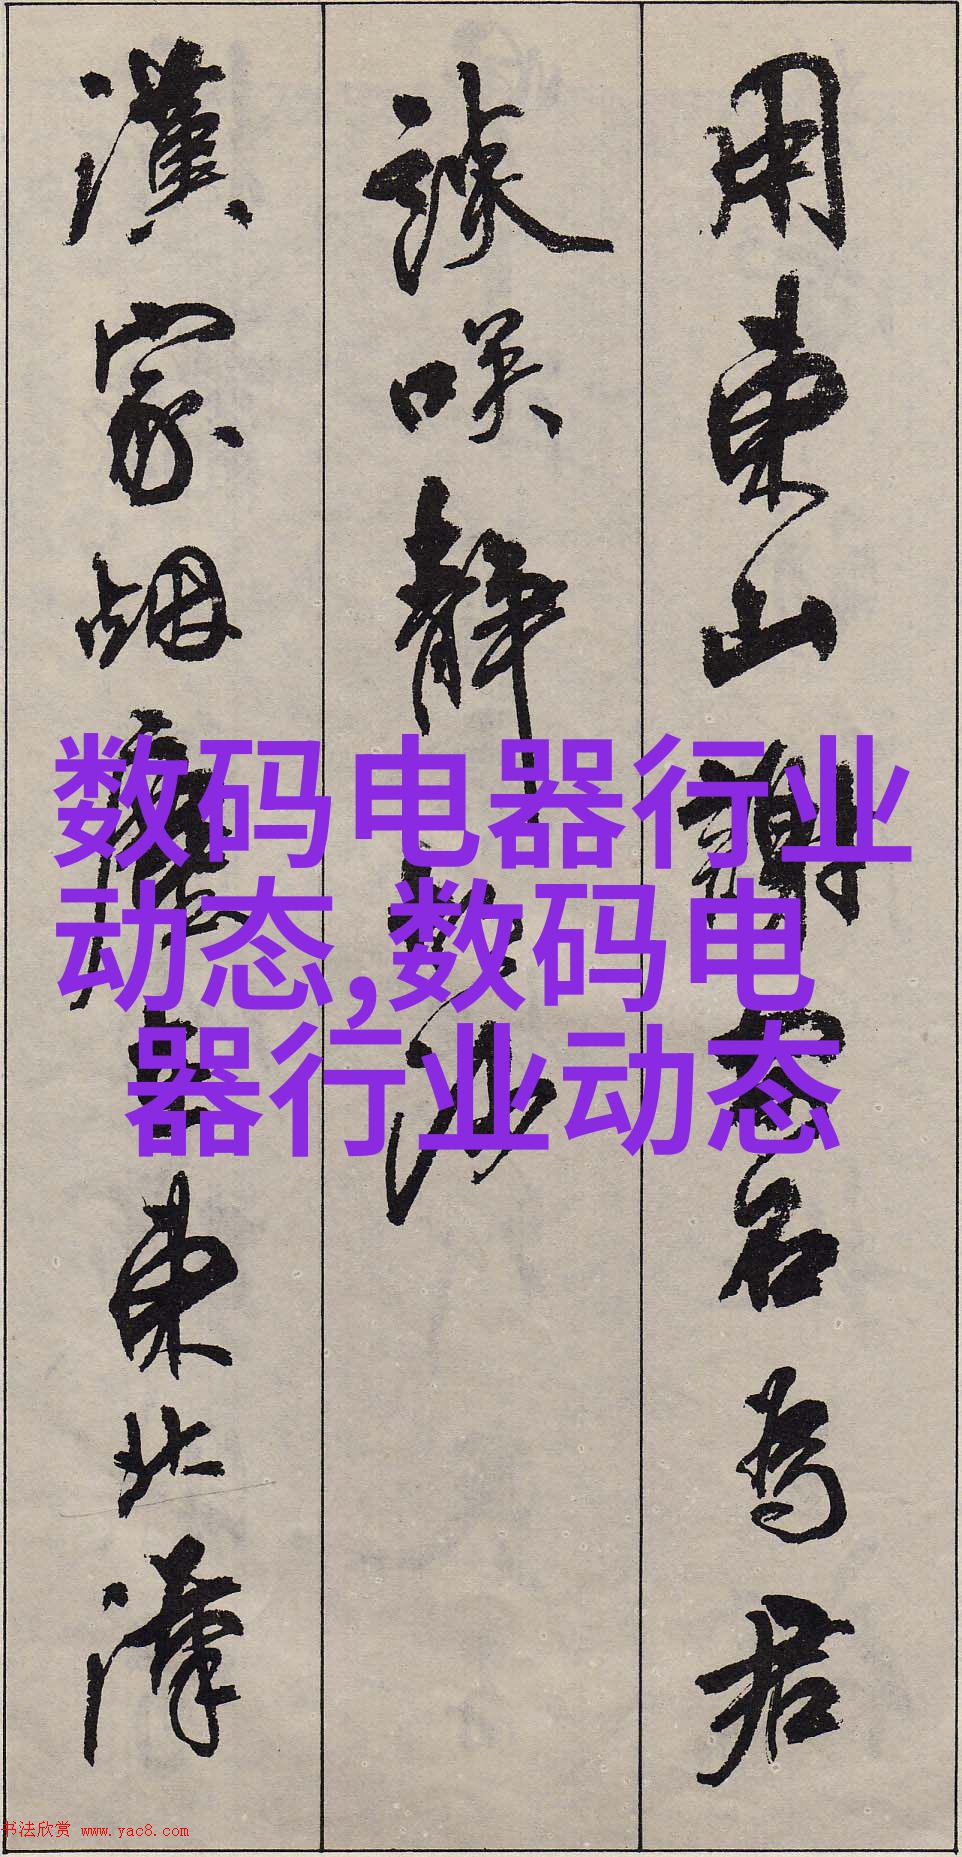 用東山謝安石為君
談咲靜胡沙
漢家烟塵在東北漢
数码电器行业
动态,数码电
器行业动态
书法欣赏 www.yac8.com